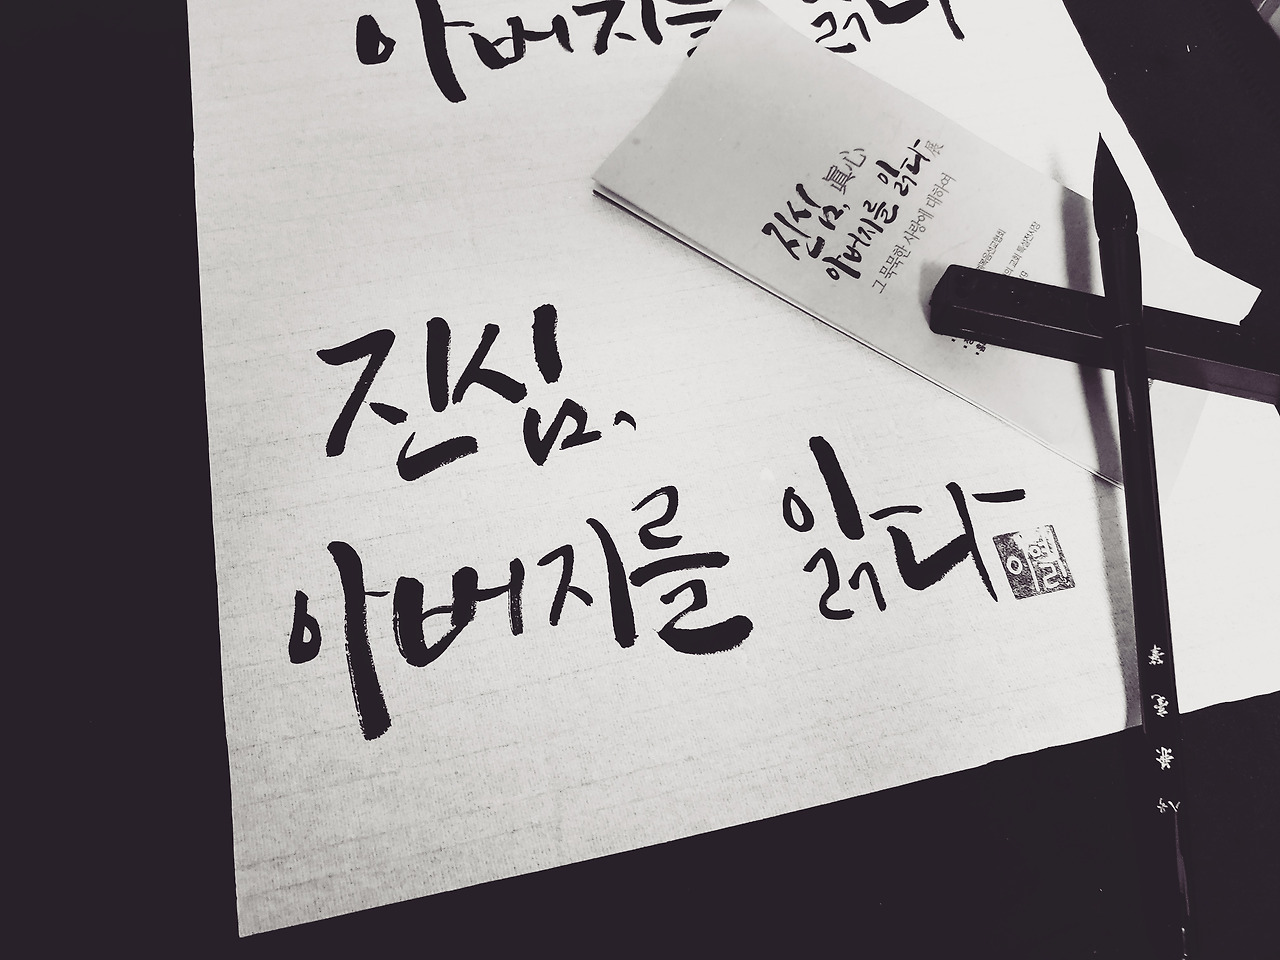 아버지를 읽다
진심, 眞心
아버지를 읽다 展
그 묵묵한 사랑에 대하여
교회 특설전시장
진심,
아버지를 읽다